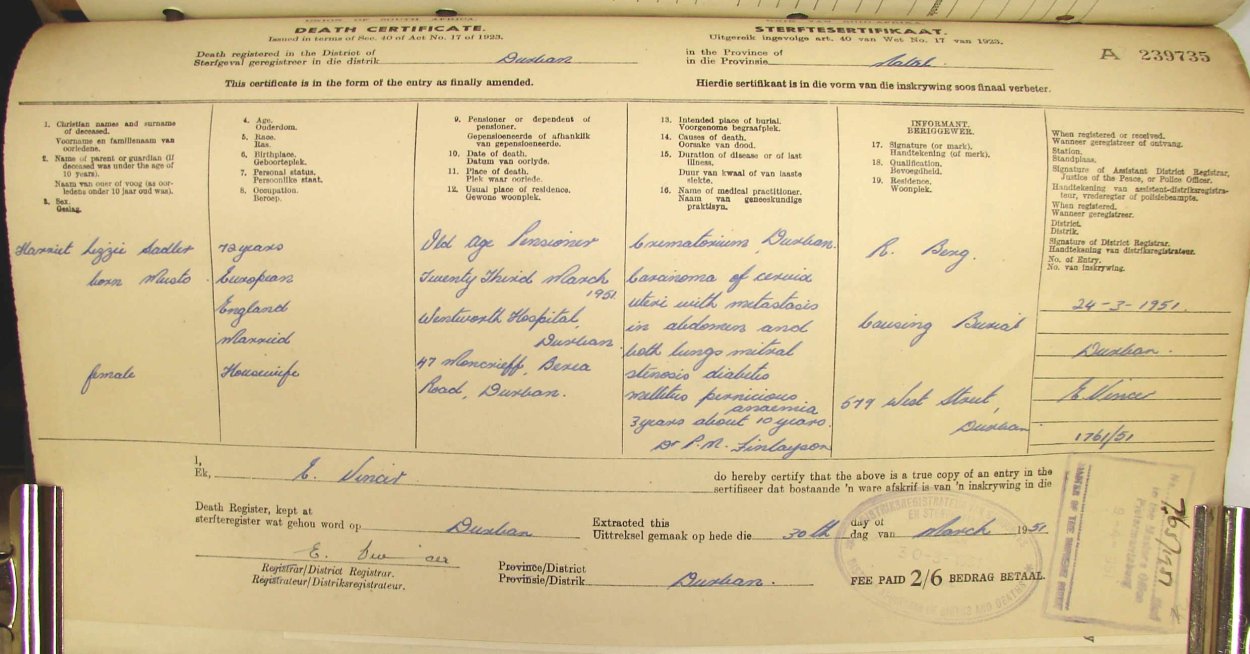 UNION OF SOUTH AFRICA
DEATH CERTIFICATE.
Issued in terms of Sec. 40 of Act No. 17 of 1923.
STERFTESERTIFIKAAT.
Uitgereik ingevolge art. 40 van Wet No. 17 van 1923.
Death registered in the District of
Sterfgeval geregistreer in die distrik Durban
in the Province of
in die Provinsie Natal.
A 239735
This certificate is in the form of the entry as finally amended.
Hierdie sertifikaat is in die vorm van die inskrywing soos finaal verbeter.
1. Christian names and surname
of deceased.
Voorname en familienaam van
oorledene.
2. Name of parent or guardian (if
deceased was under the age of
10 years).
Naam van ouer of voog (as oor-
ledene onder 10 jaar oud was).
3. Sex.
Geslag.
4. Age.
Ouderdom.
5. Race.
Ras.
6. Birthplace.
Geboorteplek.
7. Personal status.
Persoonlike staat.
8. Occupation.
Beroep.
9. Pensioner or dependent of
pensioner.
Gepensioeneerde of afhanklik
van gepensioeneerde.
10. Date of death.
Datum van oorlyde.
11. Place of death.
Plek waar oorlede.
12. Usual place of residence.
Gewone woonplek.
13. Intended place of burial.
Voorgenome begraafplek.
14. Causes of death.
Oorsake van dood.
15. Duration of disease or of last
illness.
Duur van kwaal of van laaste
siekte.
16. Name of medical practitioner.
Naam van geneeskundige
praktisyn.
INFORMANT.
BERIGGEWER.
17. Signature (or mark).
Handtekening (of merk).
18. Qualification.
Bevoegdheid.
19. Residence.
Woonplek.
When registered or received.
Wanneer geregistreer of ontvang.
Station.
Standplaas.
Signature of Assistant District Registrar,
Justice of the Peace, or Police Officer.
Handtekening van assistent-distriksregistra-
teur, vrederegter of polisiebeampte.
When registered.
Wanneer geregistreer.
District.
Distrik.
Signature of District Registrar.
Handtekening van distriksregistrateur.
No. of Entry.
No. van inskrywing.
Harriet Lizzie Sadler
born Musto
female
72 years
European
England
Married
Housewife
Old Age Pensioner
Twenty Third March
1951
Wentworth Hospital,
Durban
47 Moncrieff, Berea
Road, Durban.
Crematorium Durban.
Carcinoma of cervix
uteri with metastasis
in abdomen and
both lungs mitral
stenosis diabetis
mellitus pernicious
anaemia
3 years about 10 years.
Dr P. M. Finlayson
R. Berg.
Causing Burial
579 West Street,
Durban
24-3-1951.
Durban.
E. Vincer
1761/51
I,
Ek, E. Vincer
do hereby certify that the above is a true copy of an entry in the
sertifiseer dat bostaande 'n ware afskrif is van 'n inskrywing in die
Death Register, kept at
sterfteregister wat gehou word op Durban
Extracted this
Uittreksel gemaak op hede die 30th
day of
dag van March 1951
Registrar/District Registrar.
Registrateur/Distriksregistrateur.
Province/District
Provinsie/Distrik Durban.
FEE PAID 2/6 BEDRAG BETAAL.